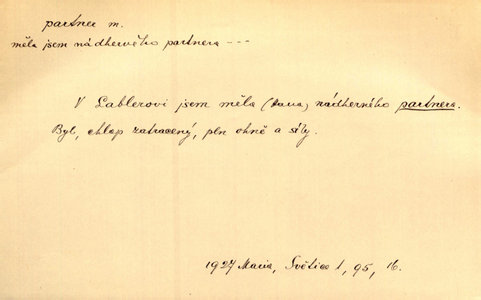 partner m.
měla jsem nádherného partnera ---
V Lablerovi jsem měla (Hana) nádherného partnera.
Byl, chlap zatracený, pln ohně a síly.
1927 Maria, Světice 1, 95, 16.